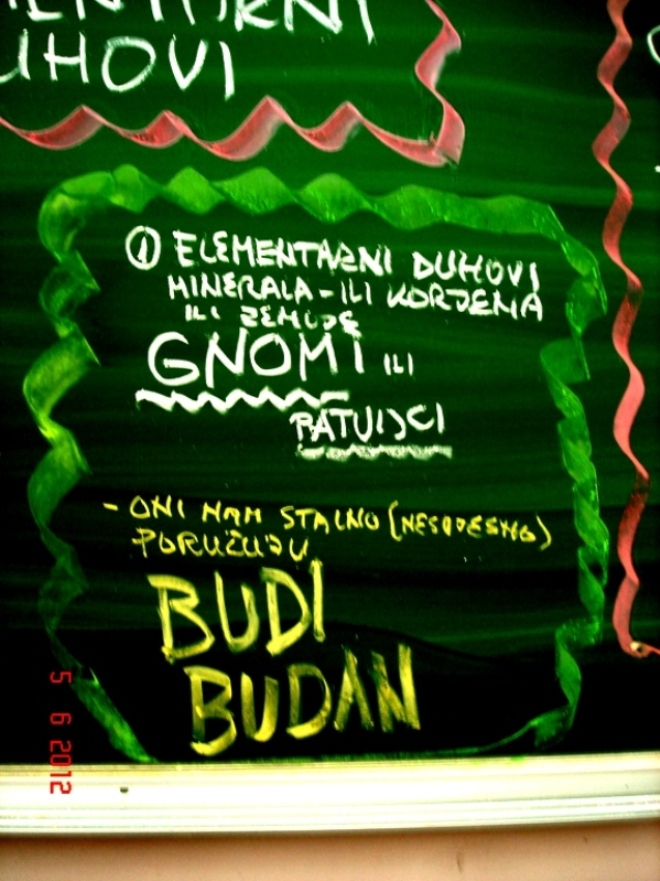 UHOVI
① ELEMENTARNI DUHOVI
MINERALA - ILI KORJENA
ILI ZEMLJE
GNOMI ILI
PATULJCI
- ONI NAM STALNO (NESVJESNO)
PORUČUJU
BUDI
BUDAN
5 6 2012